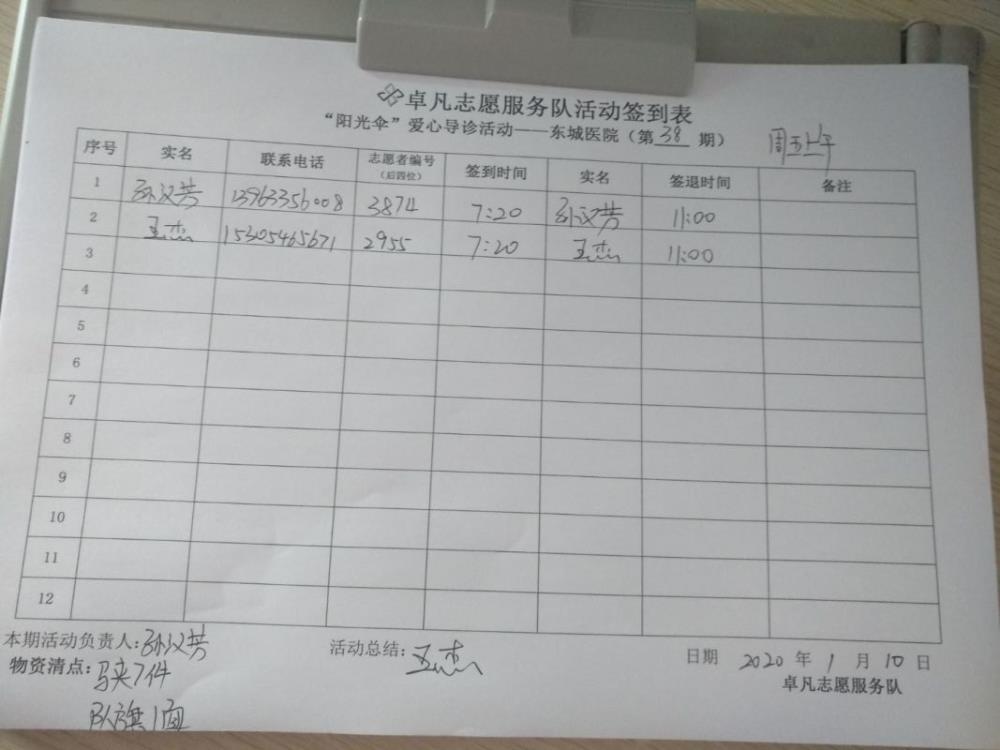 卓凡志愿服务队活动签到表
“阳光伞”爱心导诊活动——东城医院（第38期）
周五上午
序号 实名 联系电话 志愿者编号（后四位） 签到时间 实名 签退时间 备注
1 孙汉芳 13963356008 3874 7:20 孙汉芳 11:00
2 王杰 15305465671 2955 7:20 王杰 11:00
3
4
5
6
7
8
9
10
11
12
本期活动负责人：孙汉芳 活动总结：王杰 日期 2020年1月10日
物资清点：马夹7件 卓凡志愿服务队
队旗1面